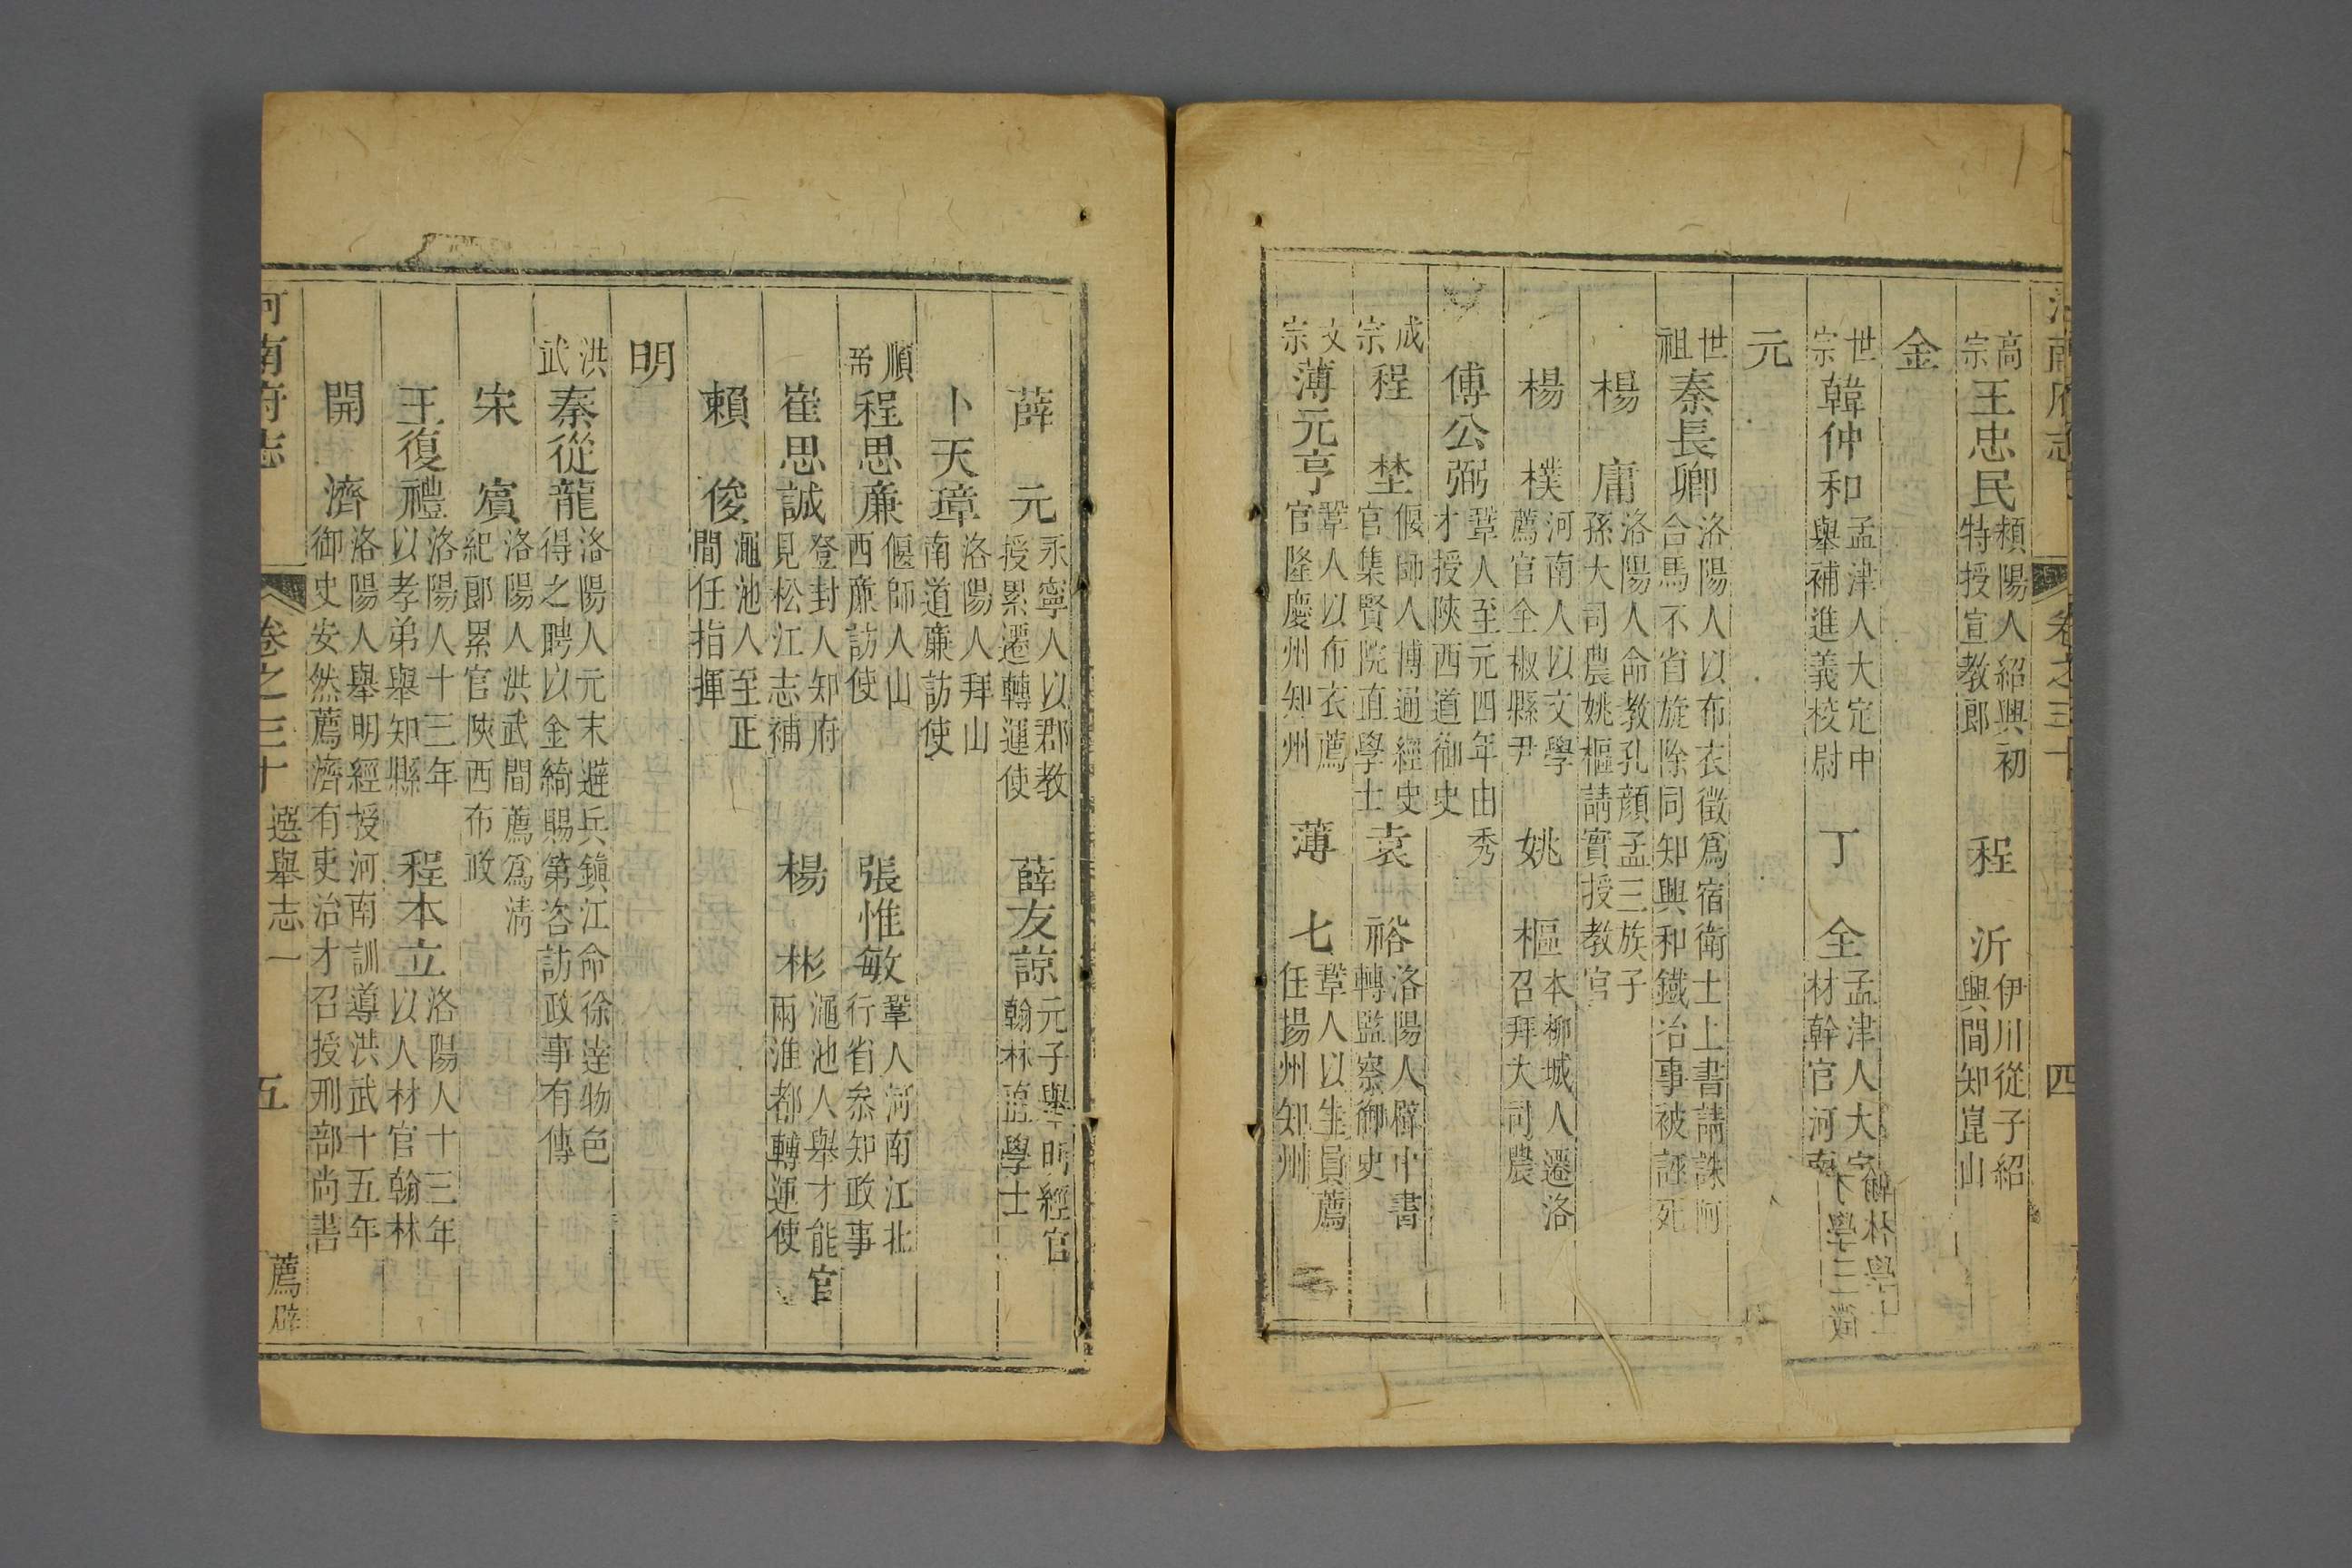 河南府志 卷之三十 四
高宗 王忠民 潁陽人紹興初特授宣教郎 程沂 伊川從子紹興間知崑山
金
世宗 韓仲和 孟津人大定中舉補進義校尉 丁全 孟津人大定材幹官河南
元
世祖 秦長卿 洛陽人以布衣徵爲宿衛士上書請誅阿合馬不省旋除同知興和鐵冶事被誣死
楊庸 洛陽人命教孔顔孟三族子孫大司農姚樞請實授教官
楊樸 河南人以文學薦官全椒縣尹 姚樞 本柳城人遷洛召拜大司農
傅公弼 鞏人至元四年由秀才授陝西道御史
成宗 程埜 偃師人博通經史官集賢院直學士 袁裕 洛陽人辟中書轉監察御史
文宗 薄元亨 鞏人以布衣薦官隆慶州知州 薄七 鞏人以生員薦任揚州知州
薛元 永寧人以郡教授累遷轉運使 薛友諒 元子舉明經官翰林直學士
卜天璋 洛陽人拜山南道亷訪使
順帝 程思亷 偃師人山西亷訪使 張惟敏 鞏人河南江北行省叅知政事
崔思誠 登封人知府見松江志補 楊彬 澠池人舉才能官兩淮都轉運使
賴俊 澠池人至正間任指揮
明
洪武 秦從龍 洛陽人元末避兵鎮江命徐達物色得之聘以金綺賜第咨訪政事有傳
宋賓 洛陽人洪武間薦爲淸紀郎累官陝西布政
王復禮 洛陽人十三年以孝弟舉知縣 程本立 洛陽人十三年以人材官翰林
開濟 洛陽人舉明經授河南訓導洪武十五年御史安然薦濟有吏治才召授刑部尚書
河南府志 卷之三十 選舉志一 薦辟 五